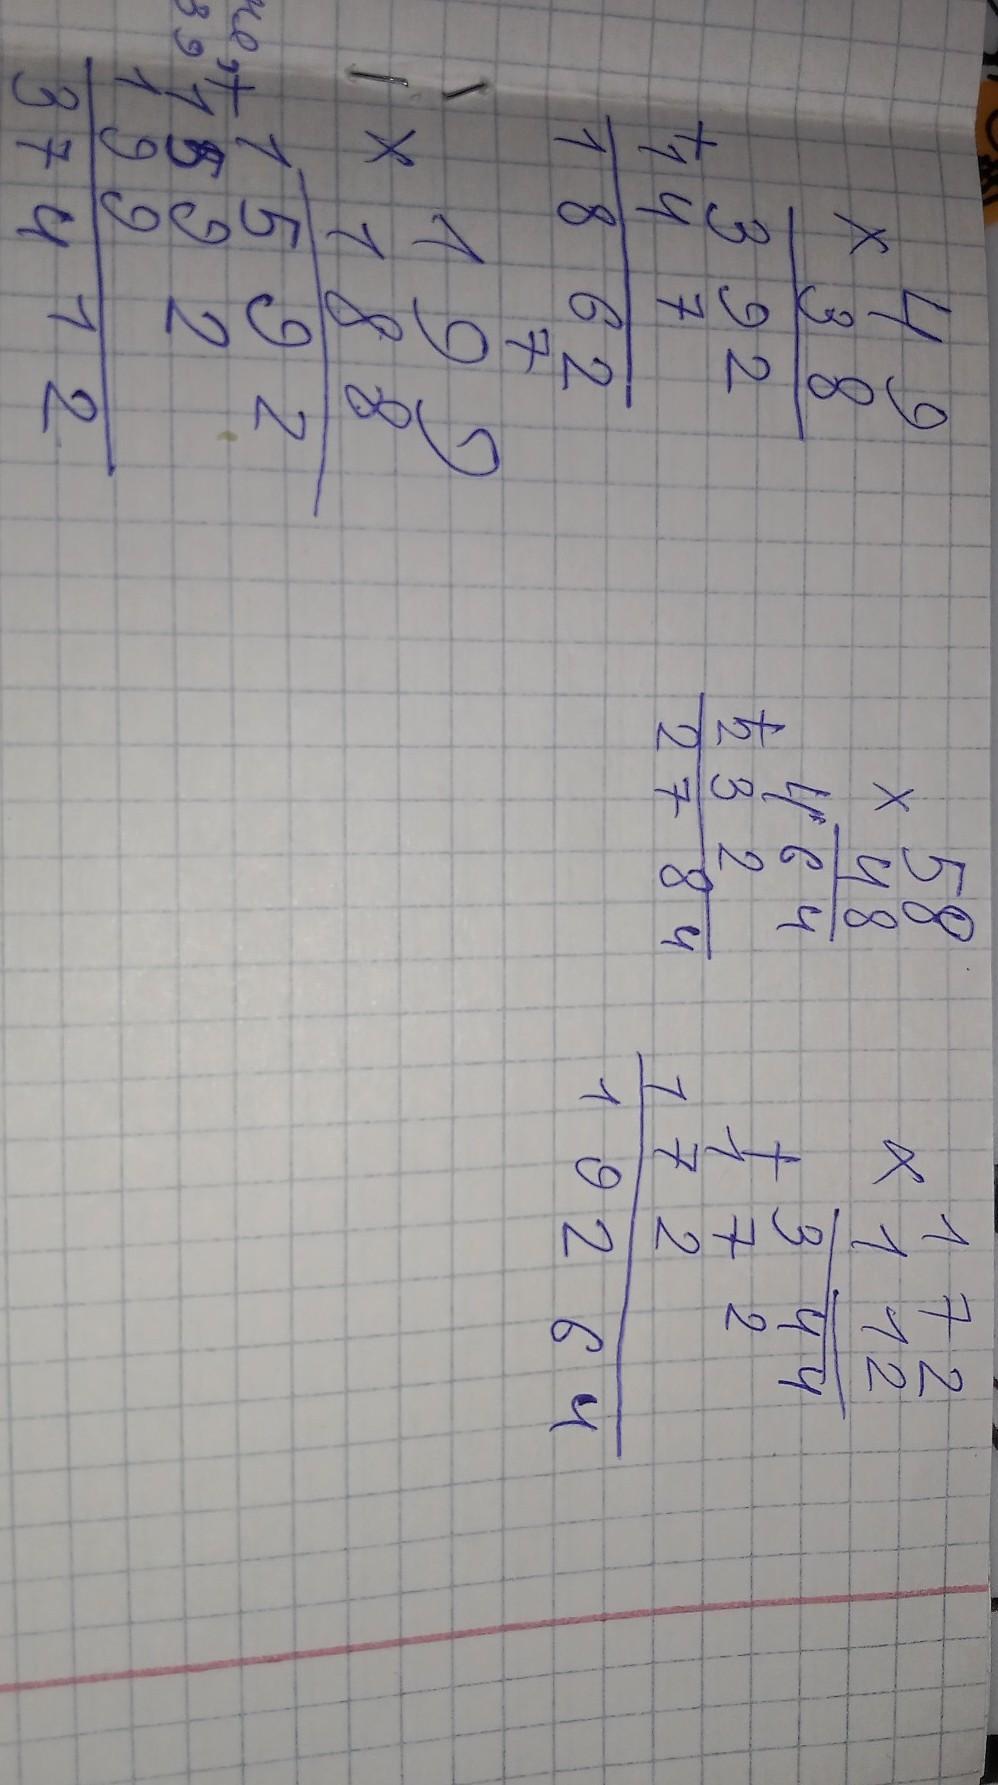 49
× 38
392
+147
1862
58
× 48
464
+232
2784
172
× 112
344
+172
172
19264
7
199
× 188
1592
+1592
199
37412